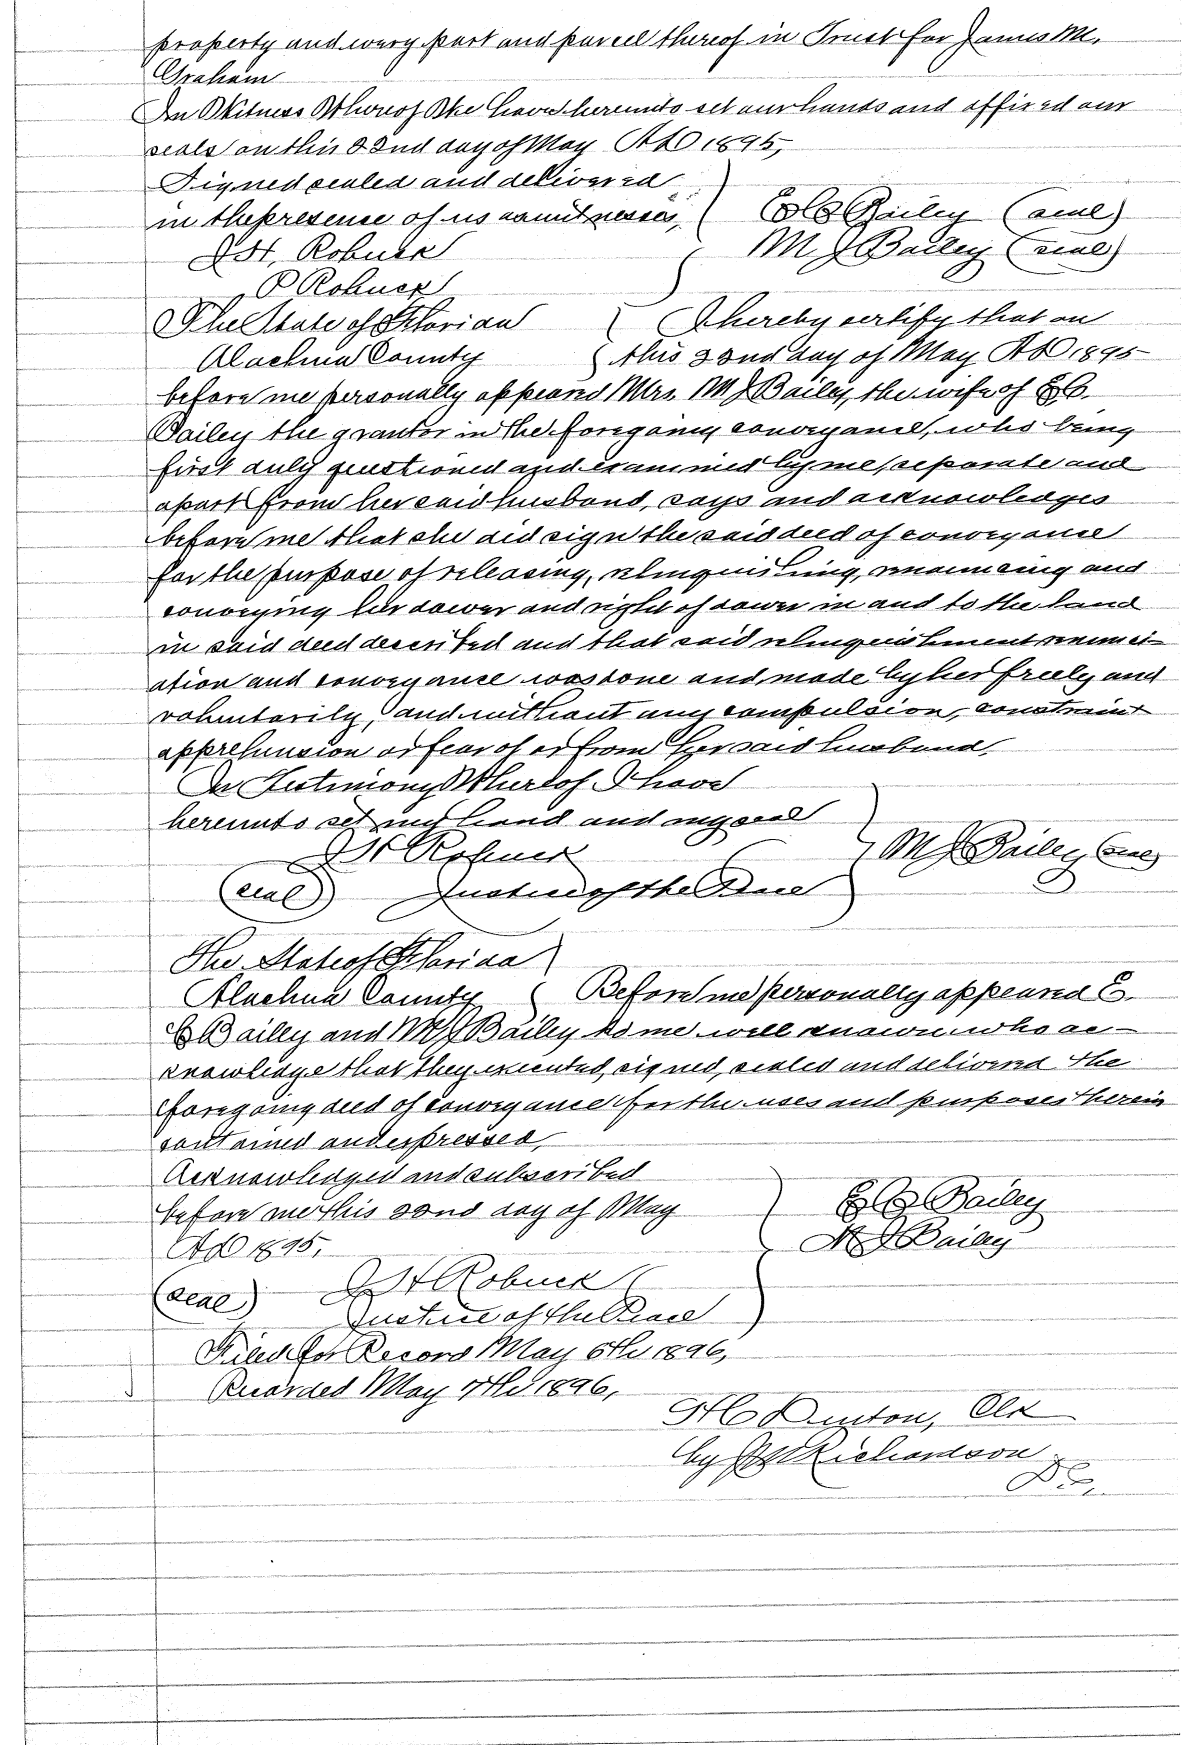 property and every part and parcel thereof in Trust for James M.
Graham
In Witness Whereof We have hereunto set our hands and affixed our
seals on this 22nd day of May AD 1895,
Signed sealed and delivered
in the presence of us as witnesses, E C Bailey (seal)
J H. Robuck M J Bailey (seal)
P Robuck
The State of Florida I hereby certify that on
Alachua County this 22nd day of May AD 1895
before me personally appeared Mrs. M J Bailey, the wife of E C.
Bailey the grantor in the foregoing conveyance, who being
first duly questioned and examined by me, separate and
apart from her said husband, says and acknowledges
before me that she did sign the said deed of conveyance
for the purpose of releasing, relinquishing, renouncing and
conveying her dower and right of dower in and to the land
in said deed described and that said relinquishment renunci-
ation and conveyance was done and made by her freely and
voluntarily, and without any compulsion, constraint
apprehension or fear of or from her said husband,
In Testimony Whereof I have
hereunto set my hand and my seal
J H Robuck M J Bailey (seal)
(seal) Justice of the Peace
The State of Florida
Alachua County Before me personally appeared E.
C Bailey and M J Bailey to me well known who ac-
knowledge that they executed, signed, sealed and delivered the
foregoing deed of conveyance for the uses and purposes therein
contained and expressed,
Acknowledged and subscribed
before me this 22nd day of May E C Bailey
AD 1895, M J Bailey
(seal) J H Robuck
Justice of the Peace
Filed for Record May 6th 1896,
Recorded May 7th 1896,
H C Denton, Clk
by Richardson
D C,